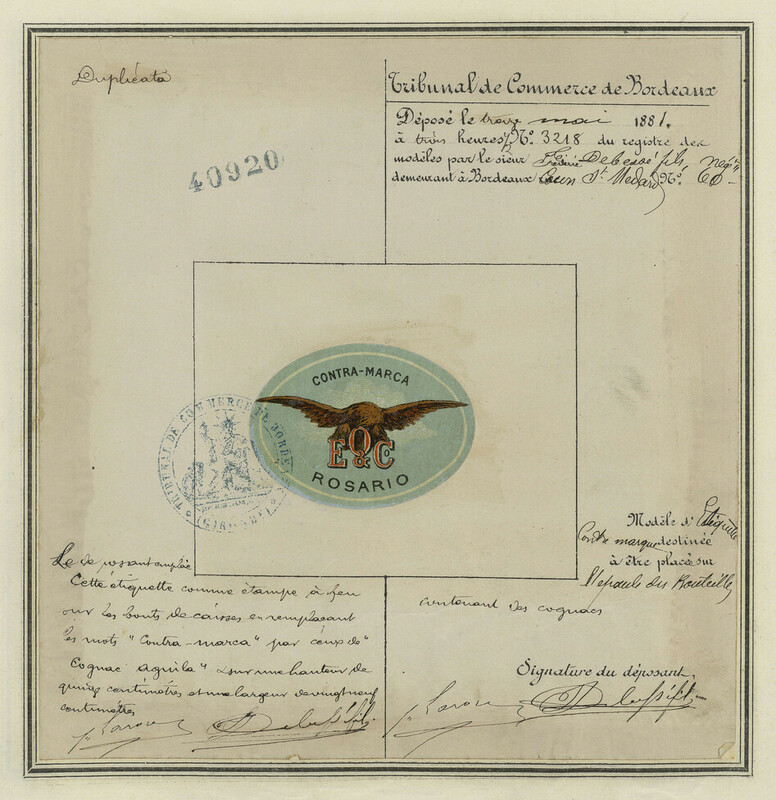 Duplicata
40920
Tribunal de Commerce de Bordeaux
Déposé le treize mai 1881.
à trois heures, N.º 3218 du registre des
modèles par le sieur Debessé fils, négt
demeurant à Bordeaux Cours St Médard N.º 60
CONTRA-MARCA
EQ & Co
ROSARIO
TRIBUNAL DE COMMERCE DE BORDEAUX
(GIRONDE)
Modèle d'Etiquette
Contre marque destinée
à être placée sur
l'épaule des Bouteilles
contenant des cognacs
Signature du déposant,
Le déposant emploie
Cette étiquette comme étampe à feu
sur les bouts de caisses en remplaçant
les mots "Contra-marca" par ceux de "
Cognac aguila" sur une hauteur de
quinze centimètres et une largeur de vingt neuf
centimètres